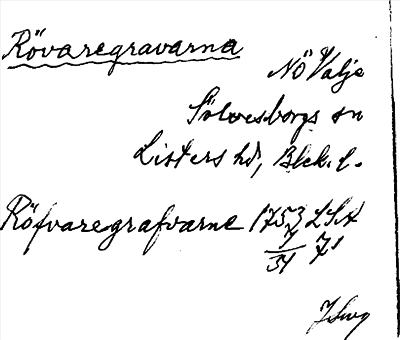 Rövaregravarna
Nö Valje
Sölvesborgs sn
Listers hd, Blek. l.
Röfvaregrafvarne 1753 LSA
7
34 71